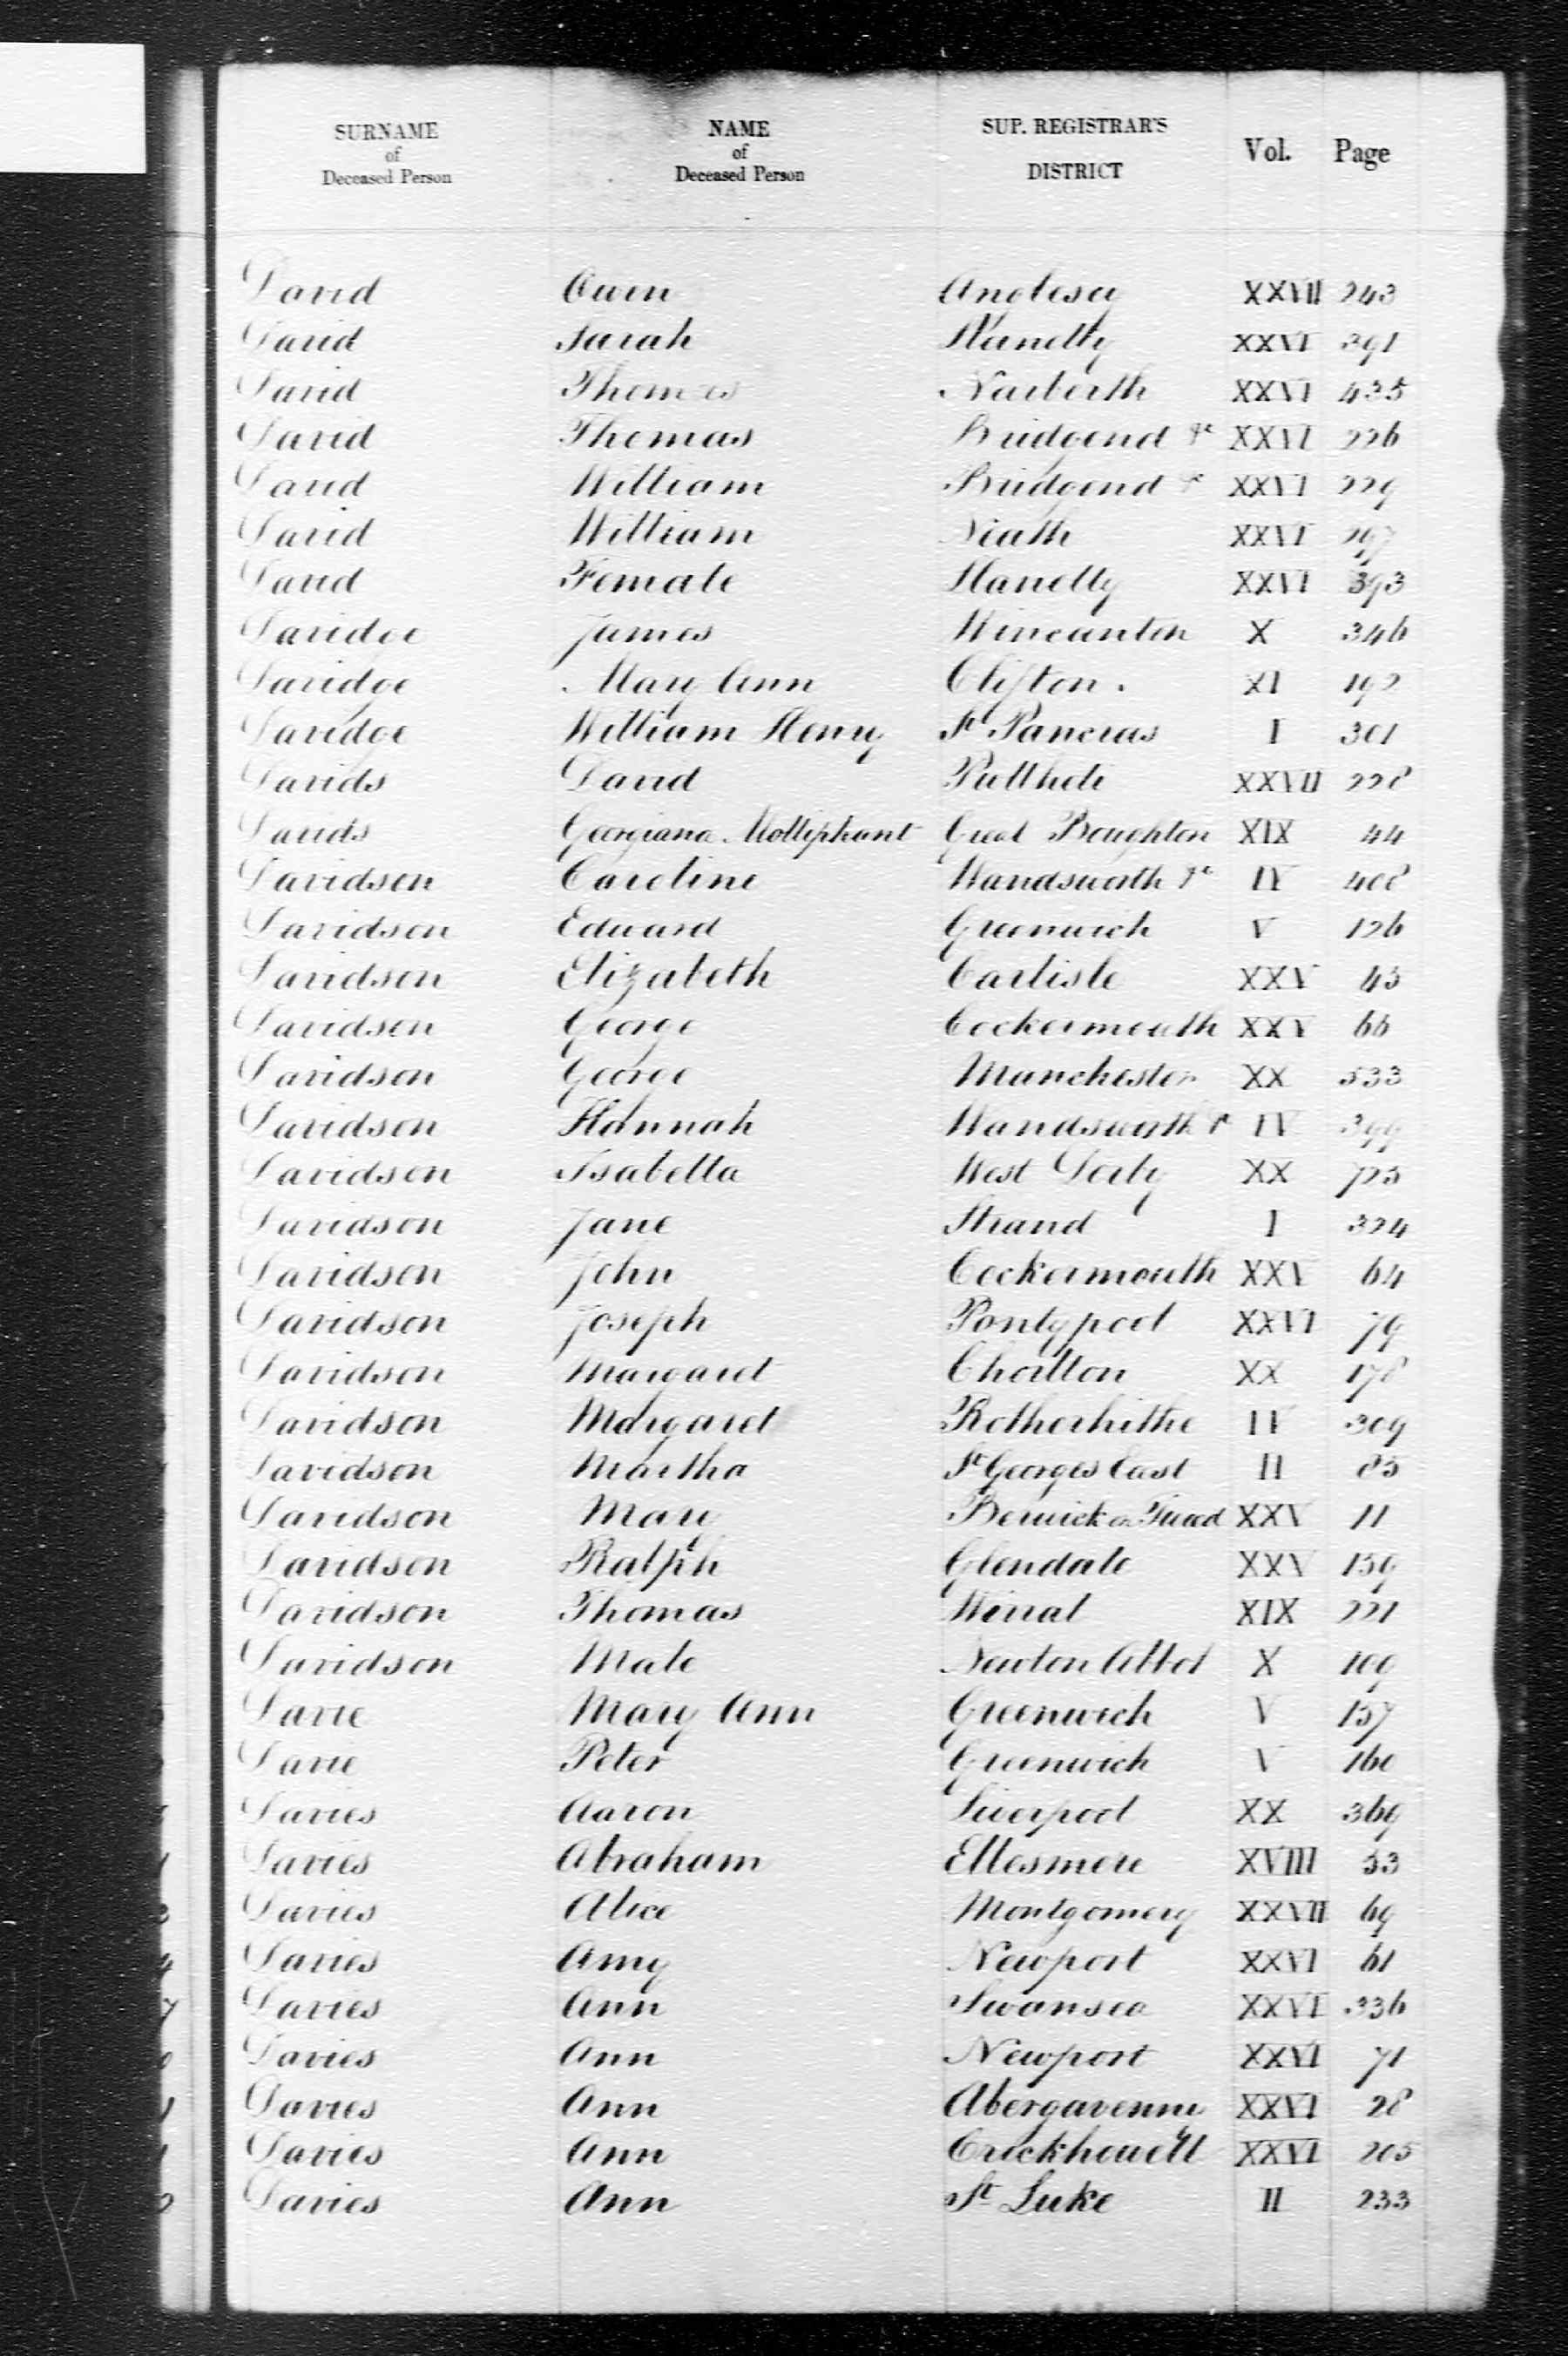 SURNAME of Deceased Person NAME of Deceased Person SUP. REGISTRAR'S DISTRICT Vol. Page
David Owen Anglesey XXVII 243
David Sarah Llanelly XXVI 391
David Thomas Narberth XXVI 435
David Thomas Bridgend &c XXVI 226
David William Bridgend &c XXVI 229
David William Neath XXVI 297
David Female Llanelly XXVI 393
Davidge James Wincanton X 346
Davidge Mary Ann Clifton. XI 192
Davidge William Henry St Pancras I 301
Davids David Pwllheli XXVII 228
Davids Georgiana Great Boughton XIX 44
Davidson Caroline Wandsworth &c IV 408
Davidson Edward Greenwich V 126
Davidson Elizabeth Carlisle XXV 43
Davidson George Cockermouth XXV 66
Davidson George Manchester XX 533
Davidson Hannah Wandsworth &c IV 399
Davidson Isabella West Derby XX 723
Davidson Jane Strand I 324
Davidson John Cockermouth XXV 64
Davidson Joseph Pontypool XXVI 79
Davidson Margaret Chorlton XX 178
Davidson Margaret Rotherhithe IV 309
Davidson Martha St Georges East II 83
Davidson Mary Berwick on Tweed XXV 11
Davidson Ralph Glendale XXV 159
Davidson Thomas Wirral XIX 221
Davidson Male Newton Abbot X 109
Davie Mary Ann Greenwich V 157
Davie Peter Greenwich V 160
Davies Aaron Liverpool XX 369
Davies Abraham Ellesmere XVIII 53
Davies Alice Montgomery XXVII 69
Davies Amy Newport XXVI 61
Davies Ann Swansea XXVI 336
Davies Ann Newport XXVI 71
Davies Ann Abergavenny XXVI 28
Davies Ann Crickhowell XXVI 205
Davies Ann St Luke II 233